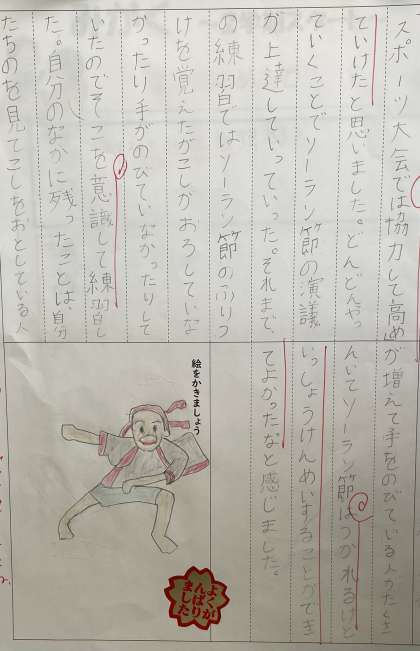 スポーツ大会では協力して高め
ていけたと思いました。どんどんやっ
ていくことでソーラン節の演議
が上達していっていった。それまで、
の練習ではソーラン節のふりつ
けを覚えたがこしがおろしていな
かったり手がのびていなかったりして
いたのでそこを意識して練習し
た。自分のなかに残ったことは、自分
たちのを見てこしをおとしている人
が増えて手をのびている人がたくさ
んいてソーラン節はつかれるけど
いっしょうけんめいすることができ
てよかったなと感じました。
絵をかきましょう
よくが
んばり
ました